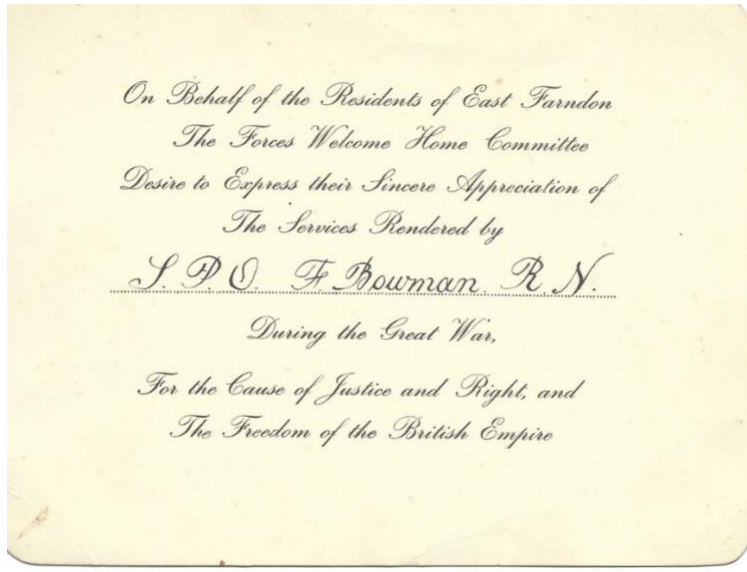 On Behalf of the Residents of East Farndon
The Forces Welcome Home Committee
Desire to Express their Sincere Appreciation of
The Services Rendered by
S. P. O. F. Bowman. R. N.
During the Great War,
For the Cause of Justice and Right, and
The Freedom of the British Empire